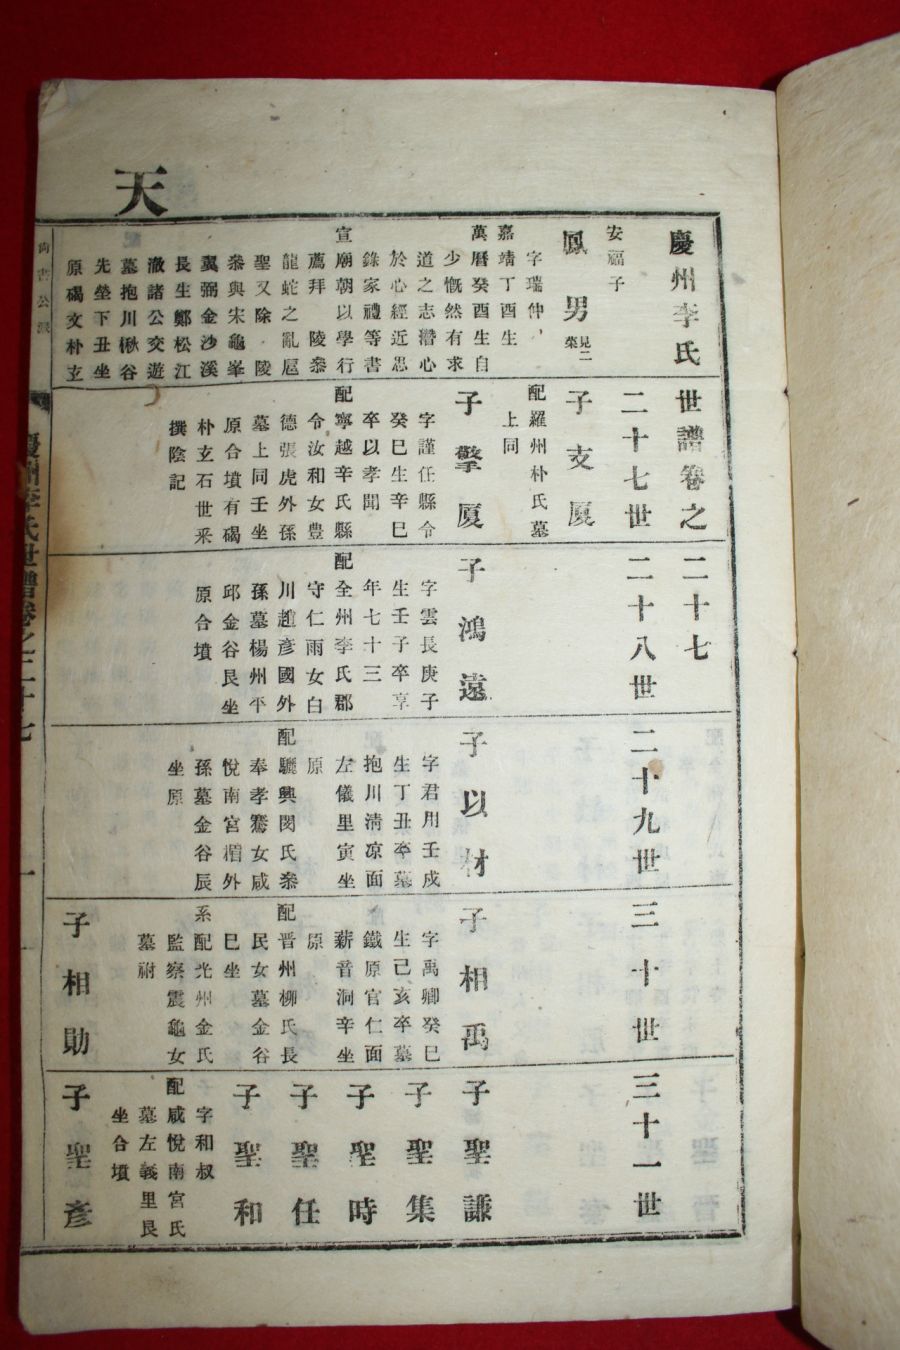 天
慶州李氏世譜卷之二十七
安福子
鳳男
見二
字瑞仲
嘉靖丁酉生
萬曆癸酉生自
少慨然有求
道之志潛心
於心經近思
錄家禮等書
宣廟朝以學行
薦拜 陵參
龍蛇之亂扈
聖又除 陵
參與宋龜峯
翼弼金沙溪
長生鄭松江
澈諸公交遊
墓抱川楸谷
先塋下丑坐
原碣文朴玄
二十七世
子支厦
配羅州朴氏墓
上同
子擎厦
字謹任縣令
癸巳生辛巳
卒以孝聞
配寧越辛氏縣
令汝和女豊
德張虎外孫
墓上同壬坐
原合墳有碣
朴玄石世采
撰陰記
二十八世
子鴻遠
字雲長庚子
生壬子卒享
年七十三
配全州李氏郡
守仁雨女白
川趙彥國外
孫墓楊州平
邱金谷艮坐
原合墳
二十九世
子以材
字君用壬戍
生丁丑卒墓
抱川淸凉面
左儀里寅坐
原
配驪興閔氏參
奉孝騫女咸
悅南宮楣外
孫墓金谷辰
坐原
三十世
子相禹
字禹卿癸巳
生己亥卒墓
鐵原官仁面
薪音洞辛坐
原
配晋州柳氏長
民女墓金谷
巳坐
系配光州金氏
監察震龜女
墓祔
子相勛
三十一世
子聖謙
子聖集
子聖時
子聖任
子聖和
字和叔
配咸悅南宮氏
墓左義里艮
坐合墳
子聖彥
尙書公派
慶州李氏世譜卷之二十七
一